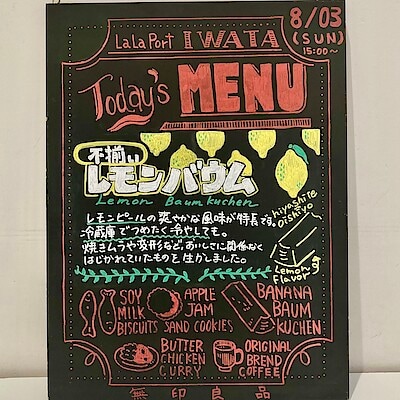 8/03
(SUN)
15:00~
LaLa Port IWATA
Today's MENU
不揃い
レモンバウム
Lemon Baumkuchen
レモンピールの爽やかな風味が特長です。
冷蔵庫でつめたく冷やしても。
焼きムラや変形など、おいしさに関係なく
はじかれていたものを生かしました。
hiyashite
oishiyo
Lemon
Flavor
SOY
MILK
BISCUITS
APPLE
JAM
SAND COOKIES
BANANA
BAUM
KUCHEN
BUTTER
CHICKEN
CURRY
ORIGINAL
BREND
COFFEE
無印良品